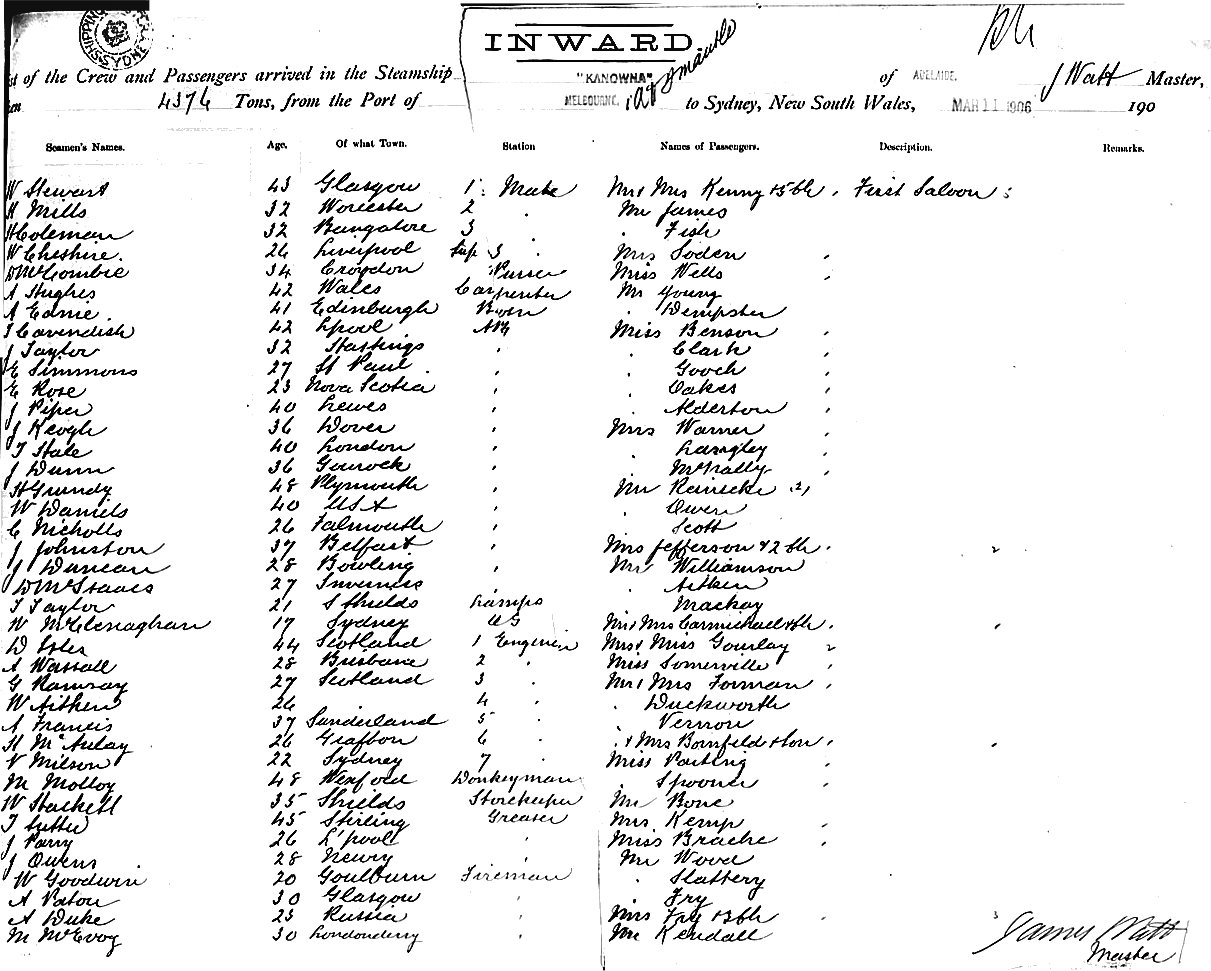 SHIPPING SYDNEY
INWARD.
of the Crew and Passengers arrived in the Steamship "KANOWNA" of ADELAIDE. J Watt Master,
4376 Tons, from the Port of MELBOURNE. to Sydney, New South Wales, MAR 11 1906 190
Seamen's Names. Age. Of what Town. Station Names of Passengers. Description. Remarks.
W Stewart 43 Glasgow 1 Mate Mr & Mrs Kenny & 5 ch First Saloon
H Mills 32 Worcester 2 Mr James
H Coleman 32 Bangalore 3 Fish
W Cheshire. 26 Liverpool Sup 3 Mrs Soden
D McCombie 34 Croydon Purser Miss Wells
A Hughes 42 Wales Carpenter Mr Young
A Edmie 41 Edinburgh Bosn Dempster
T Cavendish 42 Lpool AB Miss Benson
J Taylor 32 Hastings Clark
E Simmons 27 St Paul Gooch
E Rose 23 Nova Scotia Oakes
J Piper 40 Lewes Alderton
J Keogh 36 Dover Mrs Warner
T Hale 40 London Langley
J Dunn 36 Gourock McNally
H Grundy 48 Plymouth Mr Reinecke (2)
W Daniels 40 USA Owen
C Nicholls 26 Falmouth Scott
J Johnston 37 Belfast Mrs Jefferson & 2 ch.
J Duncan 28 Bowling Mr Williamson
D McIsaacs 27 Inverness Aitken
T Taylor 21 S Shields Lamps Mackay
W McClenaghan 17 Sydney OS Mr & Mrs Carmichael & ch.
D Isles 44 Scotland 1 Engineer Mrs & Miss Gourlay
A Wassall 28 Brisbane 2 Miss Somerville
G Ramsay 27 Scotland 3 Mr & Mrs Forman
W Aitken 26 4 Duckworth
A Francis 37 Sunderland 5 Vernon
H McAulay 26 Grafton 6 & Mrs Bornfeld & Son
V Milson 22 Sydney 7 Miss Parting
M Molloy 48 Wexford Donkeyman Spooner
W Stackell 35 Shields Storekeeper Mr Bone
T Sutter 45 Stirling Greaser Mrs Kemp
J Parry 26 L'pool Miss Brache
J Owens 28 Newry Mr Wood
W Goodwin 20 Goulburn Fireman Slattery
A Paton 30 Glasgow Fry
A Duke 23 Russia Mrs Fry & 3 ch
M McEvoy 30 Londonderry Mr Kendall
James Watt
Master